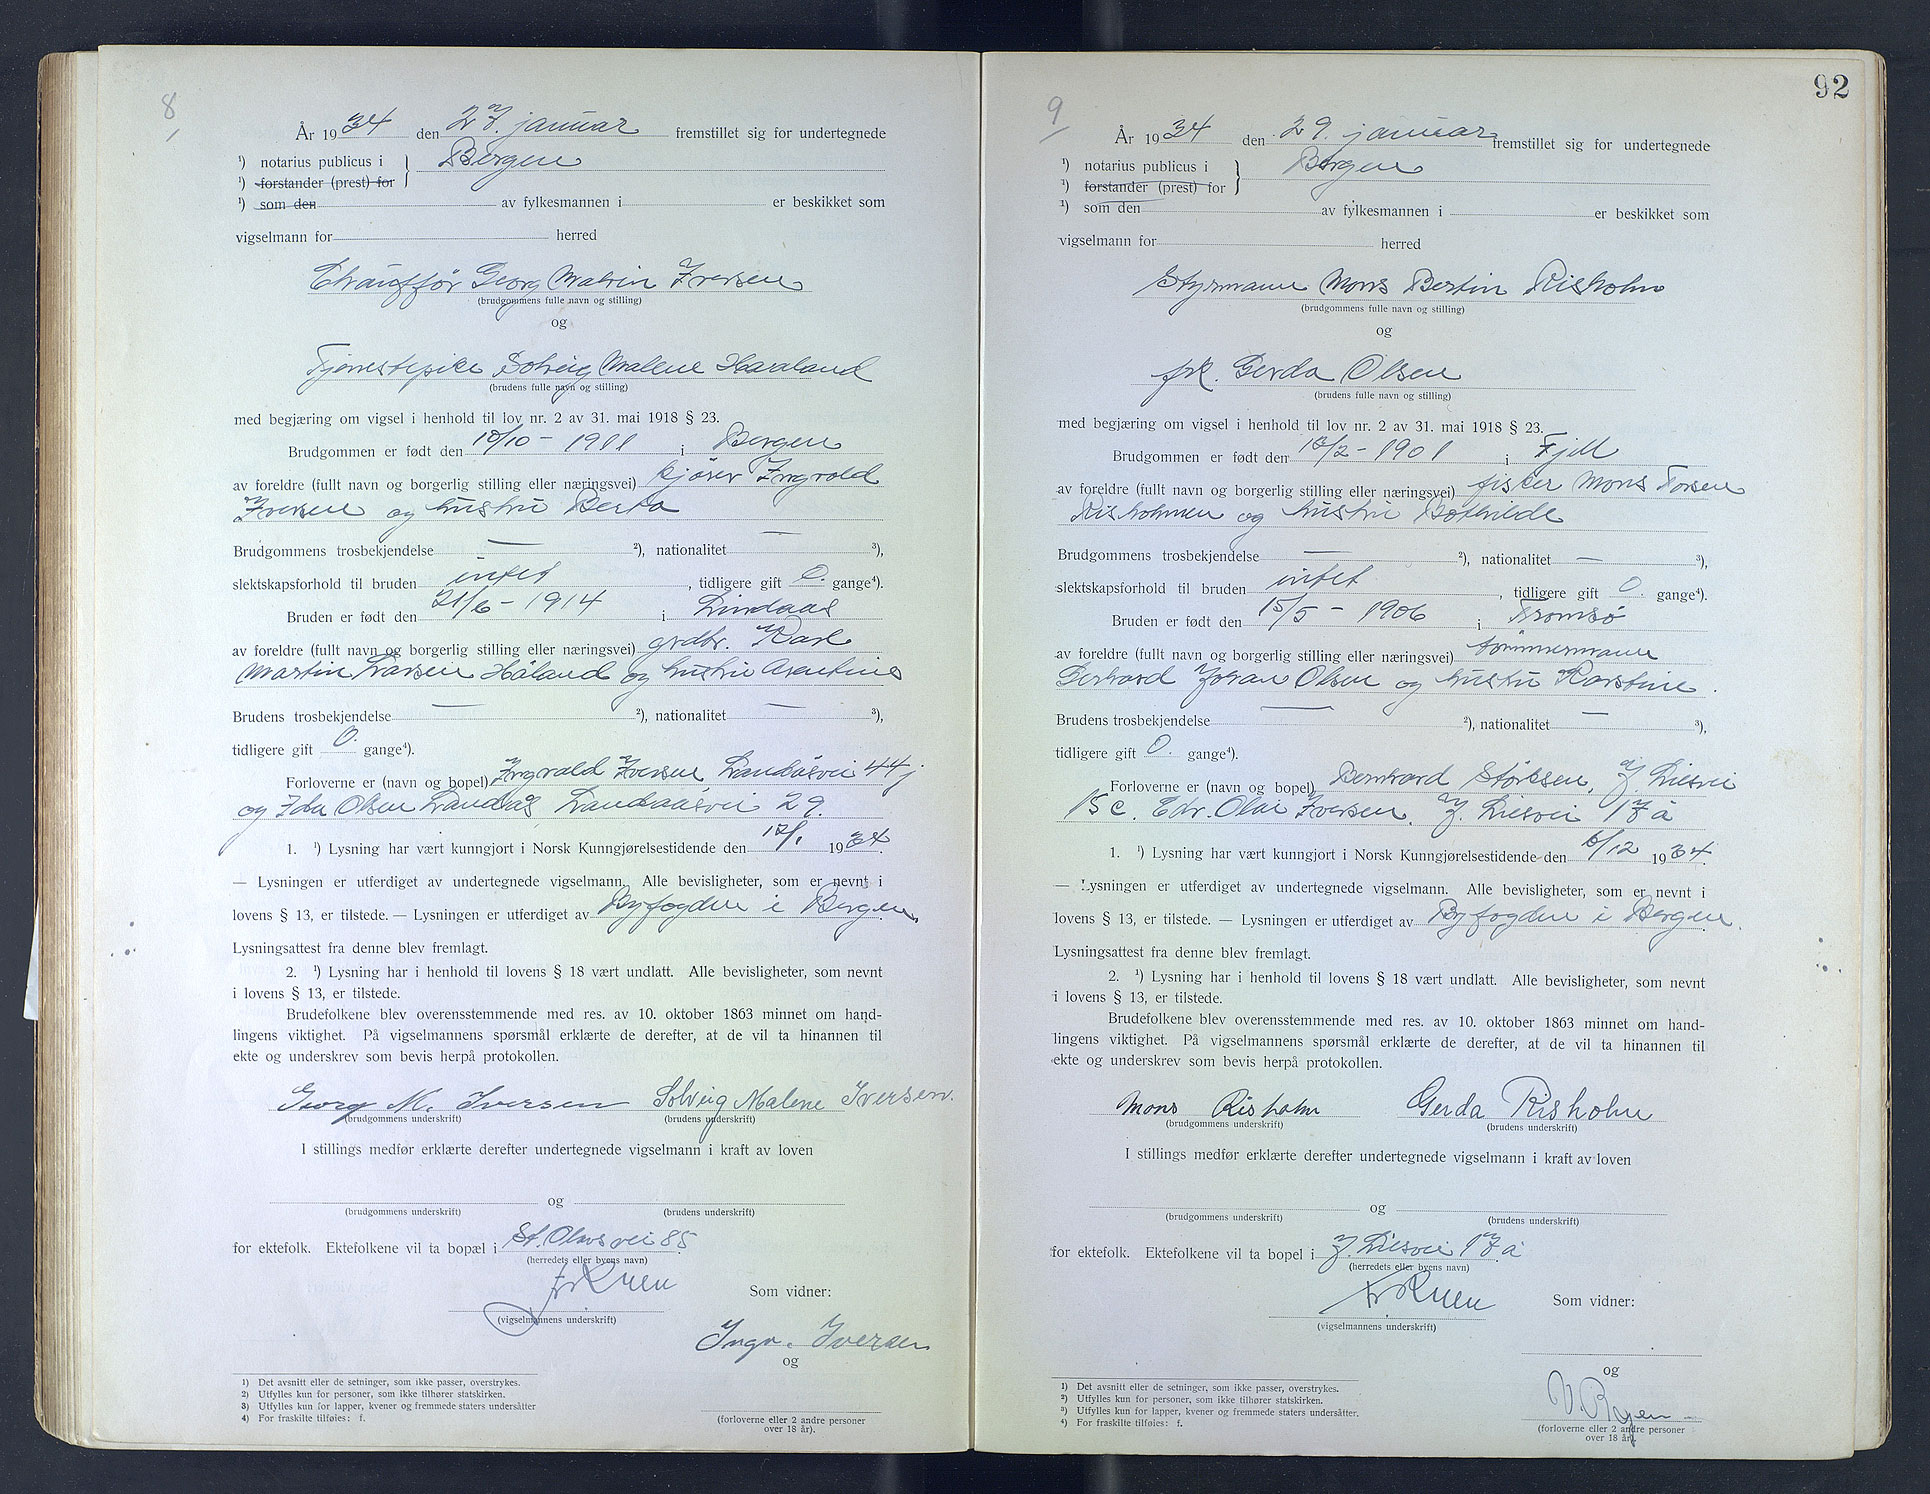 8
År 1934 den 27. januar fremstillet sig for undertegnede
¹) notarius publicus i } Bergen
¹) forstander (prest) for
¹) som den av fylkesmannen i er beskikket som
vigselmann for herred
Chauffør Georg Martin Iversen
(brudgommens fulle navn og stilling)
og
Tjenestepike Solveig Malene Haaland
(brudens fulle navn og stilling)
med begjæring om vigsel i henhold til lov nr. 2 av 31. mai 1918 § 23.
Brudgommen er født den 10/10 - 1911 i Bergen
av foreldre (fullt navn og borgerlig stilling eller næringsvei) kjører Ingvald
Iversen og hustru Berta
Brudgommens trosbekjendelse — ²), nationalitet — ³),
slektskapsforhold til bruden intet, tidligere gift 0. gange⁴).
Bruden er født den 21/6 - 1914 i Lindaas
av foreldre (fullt navn og borgerlig stilling eller næringsvei) grdbr. Karl
Martin Larsen Håland og hustru Arentine
Brudens trosbekjendelse — ²), nationalitet — ³),
tidligere gift 0. gange⁴).
Forloverne er (navn og bopel) Ingvald Iversen Landåsvei 44 j
og Olsen Landås, Landaasvei 29.
1. ¹) Lysning har vært kunngjort i Norsk Kunngjørelsestidende den 12/1 1934.
— Lysningen er utferdiget av undertegnede vigselmann. Alle bevisligheter, som er nevnt i
lovens § 13, er tilstede. — Lysningen er utferdiget av Byfogden i Bergen.
Lysningsattest fra denne blev fremlagt.
2. ¹) Lysning har i henhold til lovens § 18 vært undlatt. Alle bevisligheter, som nevnt
i lovens § 13, er tilstede.
Brudefolkene blev overensstemmende med res. av 10. oktober 1863 minnet om hand-
lingens viktighet. På vigselmannens spørsmål erklærte de derefter, at de vil ta hinannen til
ekte og underskrev som bevis herpå protokollen.
Georg M. Iversen Solveig Malene Iversen.
(brudgommens underskrift) (brudens underskrift)
I stillings medfør erklærte derefter undertegnede vigselmann i kraft av loven
og
(brudgommens underskrift) (brudens underskrift)
for ektefolk. Ektefolkene vil ta bopæl i St. Olavs vei 85.
(herredets eller byens navn)
Som vidner:
(vigselmannens underskrift)
Ingv. Iversen
og
¹) Det avsnitt eller de setninger, som ikke passer, overstrykes.
²) Utfylles kun for personer, som ikke tilhører statskirken.
³) Utfylles kun for lapper, kvener og fremmede staters undersåtter
⁴) For fraskilte tilføies: f.
(forloverne eller 2 andre personer
over 18 år).
92
9
År 1934 den 29. januar fremstillet sig for undertegnede
¹) notarius publicus i } Bergen
¹) forstander (prest) for
¹) som den av fylkesmannen i er beskikket som
vigselmann for herred
Styrmann Mons Bertin Risholm
(brudgommens fulle navn og stilling)
og
frk. Gerda Olsen
(brudens fulle navn og stilling)
med begjæring om vigsel i henhold til lov nr. 2 av 31. mai 1918 § 23.
Brudgommen er født den 18/2 - 1901 i Fjell
av foreldre (fullt navn og borgerlig stilling eller næringsvei) fisker Mons Torsen
Risholmen og hustru Bothilde
Brudgommens trosbekjendelse — ²), nationalitet — ³),
slektskapsforhold til bruden intet, tidligere gift 0. gange⁴).
Bruden er født den 15/5 - 1906 i Tromsø
av foreldre (fullt navn og borgerlig stilling eller næringsvei) tømmermann
Gerhard Johan Olsen og hustru Karstine.
Brudens trosbekjendelse — ²), nationalitet — ³),
tidligere gift 0. gange⁴).
Forloverne er (navn og bopel) Bernhard Størksen, J. Liesvei
15 c. Edv. Olai Iversen. J. Liesvei 17 a
1. ¹) Lysning har vært kunngjort i Norsk Kunngjørelsestidende den 6/12 1934.
— Lysningen er utferdiget av undertegnede vigselmann. Alle bevisligheter, som er nevnt i
lovens § 13, er tilstede. — Lysningen er utferdiget av Byfogden i Bergen.
Lysningsattest fra denne blev fremlagt.
2. ¹) Lysning har i henhold til lovens § 18 vært undlatt. Alle bevisligheter, som nevnt
i lovens § 13, er tilstede.
Brudefolkene blev overensstemmende med res. av 10. oktober 1863 minnet om hand-
lingens viktighet. På vigselmannens spørsmål erklærte de derefter, at de vil ta hinannen til
ekte og underskrev som bevis herpå protokollen.
Mons Risholm Gerda Risholm
(brudgommens underskrift) (brudens underskrift)
I stillings medfør erklærte derefter undertegnede vigselmann i kraft av loven
og
(brudgommens underskrift) (brudens underskrift)
for ektefolk. Ektefolkene vil ta bopel i J. Liesvei 17 a
(herredets eller byens navn)
Som vidner:
(vigselmannens underskrift)
og
¹) Det avsnitt eller de setninger, som ikke passer, overstrykes.
²) Utfylles kun for personer, som ikke tilhører statskirken.
³) Utfylles kun for lapper, kvener og fremmede staters undersåtter.
⁴) For fraskilte tilføies: f.
(forloverne eller 2 andre personer
over 18 år).